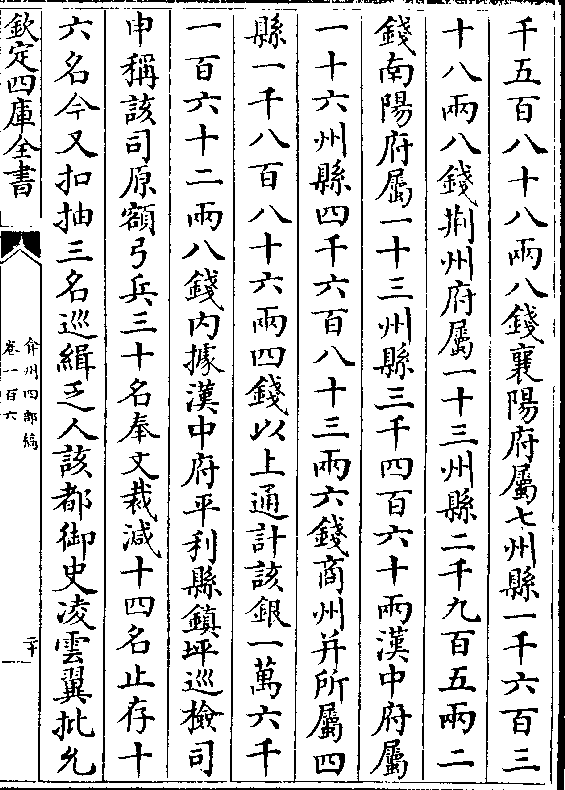 千五百八十八兩八錢襄陽府屬七州縣一千六百三
十八兩八錢荆州府屬一十三州縣二千九百五兩二
錢南陽府屬一十三州縣三千四百六十兩漢中府屬
一十六州縣四千六百八十三兩六錢商州并所屬四
縣一千八百八十六兩四錢以上通計該銀一萬六千
一百六十二兩八錢内據漢中府平利縣鎮坪巡檢司
申稱該司原額弓兵三十名奉文裁減十四名止存十
六名今又扣抽三名巡緝乏人該都御史凌雲翼批允
欽定四庫全書
弇州四部稿
卷一百六
二十